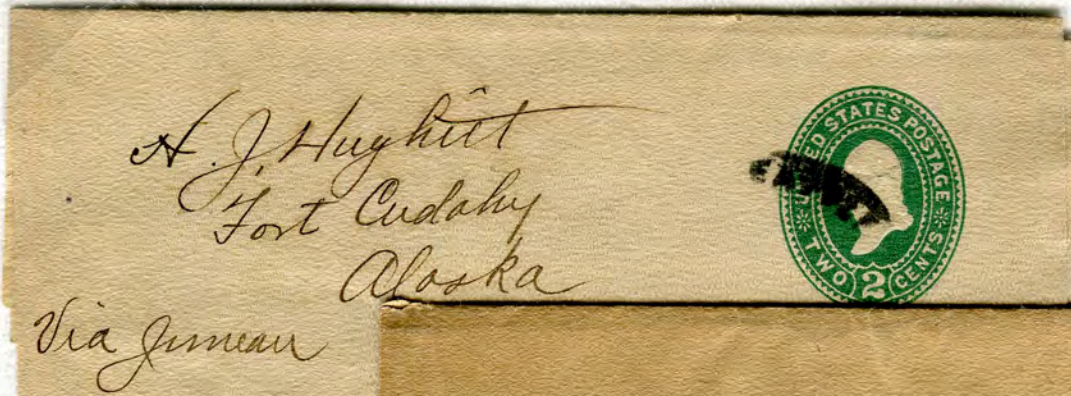 H. J. Hughitt
Fort Cudahy
Alaska
Via Juneau
UNITED STATES POSTAGE
TWO 2 CENTS